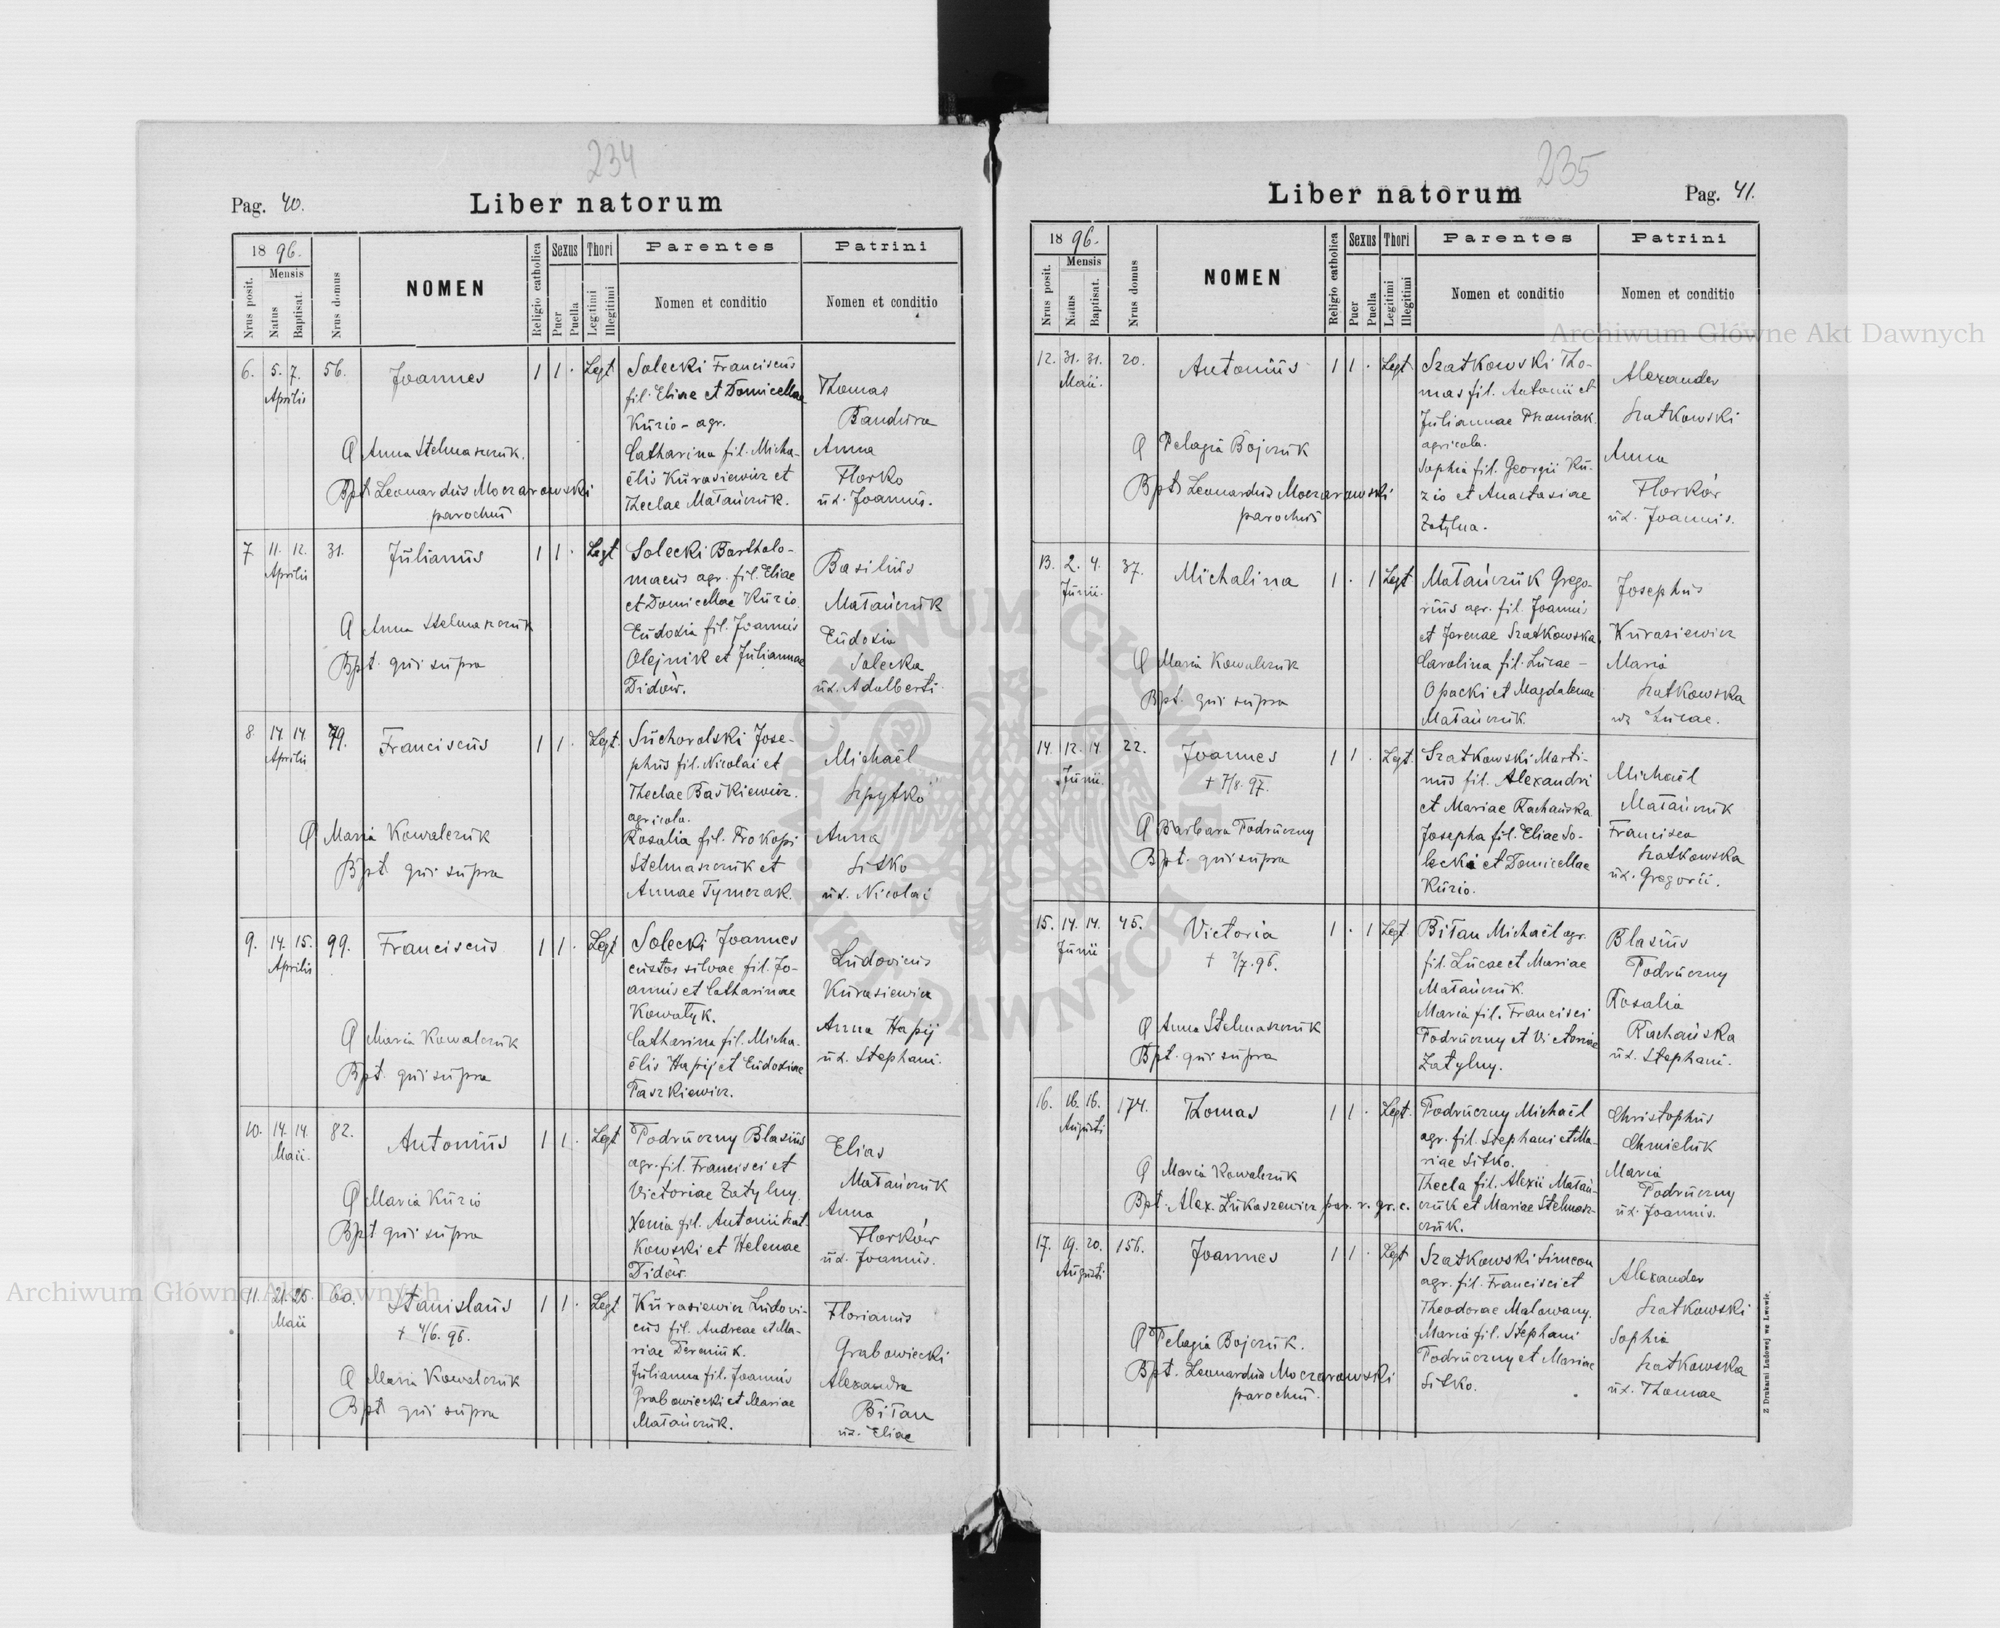 234
Pag. 40.
Liber natorum
18 96.
Nrus posit.
Mensis
Natus
Baptisat.
Nrus domus
NOMEN
Religio catholica
Sexus
Puer
Puella
Thori
Legitimi
Illegitimi
Parentes
Nomen et conditio
Patrini
Nomen et conditio
6. 5. 7. Aprilis 56.
Joannes
1 1 . Legt
Solecki Franciscus
fil. Eliae et Domicellae
Kuzio - agr.
Catharina fil. Micha-
ëlis Kurasiewicz et
Theclae Matańczuk.
Thomas
Bandura
Anna
Florko
ux. Joannis.
Anna Stelmaszczuk.
Bpt Leonardus Moczarowski
parochus
7 11. 12. Aprilis 31.
Julianus
1 1 . Legt
Solecki Bartholo-
maeus agr. fil. Eliae
et Domicellae Kuzio.
Eudoxia fil. Joannis
Olejnik et Juliannae
Didów.
Basilius
Matańczuk
Eudoxia
Solecka
ux. Adalberti
Anna Stelmaszczuk
Bpt. qui supra
8 14. 14. Aprilis 79.
Franciscus
1 1 . Legt.
Suchorolski Jose-
phus fil. Nicolai et
Theclae Baśkiewicz.
agricola.
Rosalia fil. Prokopi
Stelmaszczuk et
Annae Tymczak.
Michaël
Szpytko
Anna
Sitko
ux. Nicolai
Maria Kowalczuk
Bpt qui supra
9. 14. 15. Aprilis 99.
Franciscus
1 1 . Legt
Solecki Joannes
custos silvae fil. Jo-
annis et Catharinae
Kowatyk.
Catharina fil. Micha-
ëlis Hapij et Eudoxiae
Paszkiewicz.
Ludovicus
Kurasiewicz
Anna Hapij
ux. Stephani.
Maria Kowalczuk
Bpt. qui supra
10. 14. 14. Maii. 82.
Antonius
1 1. . Legt
Podruczny Blasius
agr. fil. Francisci et
Victoriae Zatylny.
Xenia fil. Antonii Szat-
kowski et Helenae
Didów.
Elias
Matańczuk
Anna
Florków
ux. Joannis.
Maria Kuzio
Bpt qui supra
11. 21. 25. Maii 60.
Stanislaus
+ 4/6. 96.
1 1 . Legt
Kurasiewicz Ludovi-
cus fil. Andreae et Ma-
riae Dereniuk.
Julianna fil. Joannis
Grabowiecki et Mariae
Matańczuk.
Florianus
Grabowiecki
Alexandra
Bitan
ux. Eliae
Maria Kowalczuk
Bpt qui supra
235
Liber natorum
Pag. 41.
18 96.
Nrus posit.
Mensis
Natus
Baptisat.
Nrus domus
NOMEN
Religio catholica
Sexus
Puer
Puella
Thori
Legitimi
Illegitimi
Parentes
Nomen et conditio
Patrini
Nomen et conditio
12. 31. 31. Maii. 20.
Antonius
1 1 . Legt
Szatkowski Tho-
mas fil. Antonii et
Juliannae Pszoniak
agricola.
Sophia fil. Georgii Ku-
zio et Anastasiae
Zatylna.
Alexander
Szatkowski
Anna
Florków
ux. Joannis.
Pelagia Bojczuk
Bpt Leonardus Moczarowski
parochus
13. 2. 4. Junii. 37.
Michalina
1 . 1 Legt
Matańczuk Grego-
rius agr. fil. Joannis
et Jrenae Szatkowska.
Carolina fil. Lucae -
Opacki et Magdalenae
Matańczuk
Josephus
Kurasiewicz
Maria
Szatkowska
ux Lucae.
Maria Kowalczuk
Bpt. qui supra
14. 12. 14. Junii. 22.
Joannes
+ 7/8. 97.
1 1 . Legt.
Szatkowski Marti-
nus fil. Alexandri
et Mariae Rachańska
Josepha fil. Eliae So-
lecki et Domicellae
Kuzio.
Michaël
Matańczuk
Francisca
Szatkowska
ux. Gregorii.
Barbara Podruczny
Bpt. qui supra
15. 14. 14. Junii 45.
Victoria
+ 2/7. 96.
1 . 1 Legt
Bitan Michaël agr.
fil. Lucae et Mariae
Matańczuk.
Maria fil. Francisci
Podruczny et Victoriae
Zatylny.
Blasius
Podruczny
Rosalia
Rachańska
ux. Stephani.
Anna Stelmaszczuk
Bpt. qui supra
16. 16. 16. Augusti 174.
Thomas
1 1 . Legt.
Podruczny Michaël
agr. fil. Stephani et Ma-
riae Sitko.
Thecla fil. Alexii Matań-
czuk et Mariae Stelmasz-
czuk.
Christophus
Chmieluk
Maria
Podruczny
ux. Joannis.
Maria Kowalczuk
Bpt. Alex. Lukaszewicz par. r. gr. c.
17. 19. 20. Augusti 156.
Joannes
1 1 . Legt
Szatkowski Simeon
agr. fil. Francisci et
Theodorae Malowany.
Maria fil. Stephani
Podruczny et Mariae
Sitko.
Alexander
Szatkowski
Sophia
Szatkowska
ux. Thomae
Pelagia Bojczuk.
Bpt. Leonardus Moczarowski
parochus.
Z Drukarni Ludowej we Lwowie.
Archiwum Główne Akt Dawnych
Archiwum Główne Akt Dawnych
ARCHIWUM GŁÓWNE AKT DAWNYCH